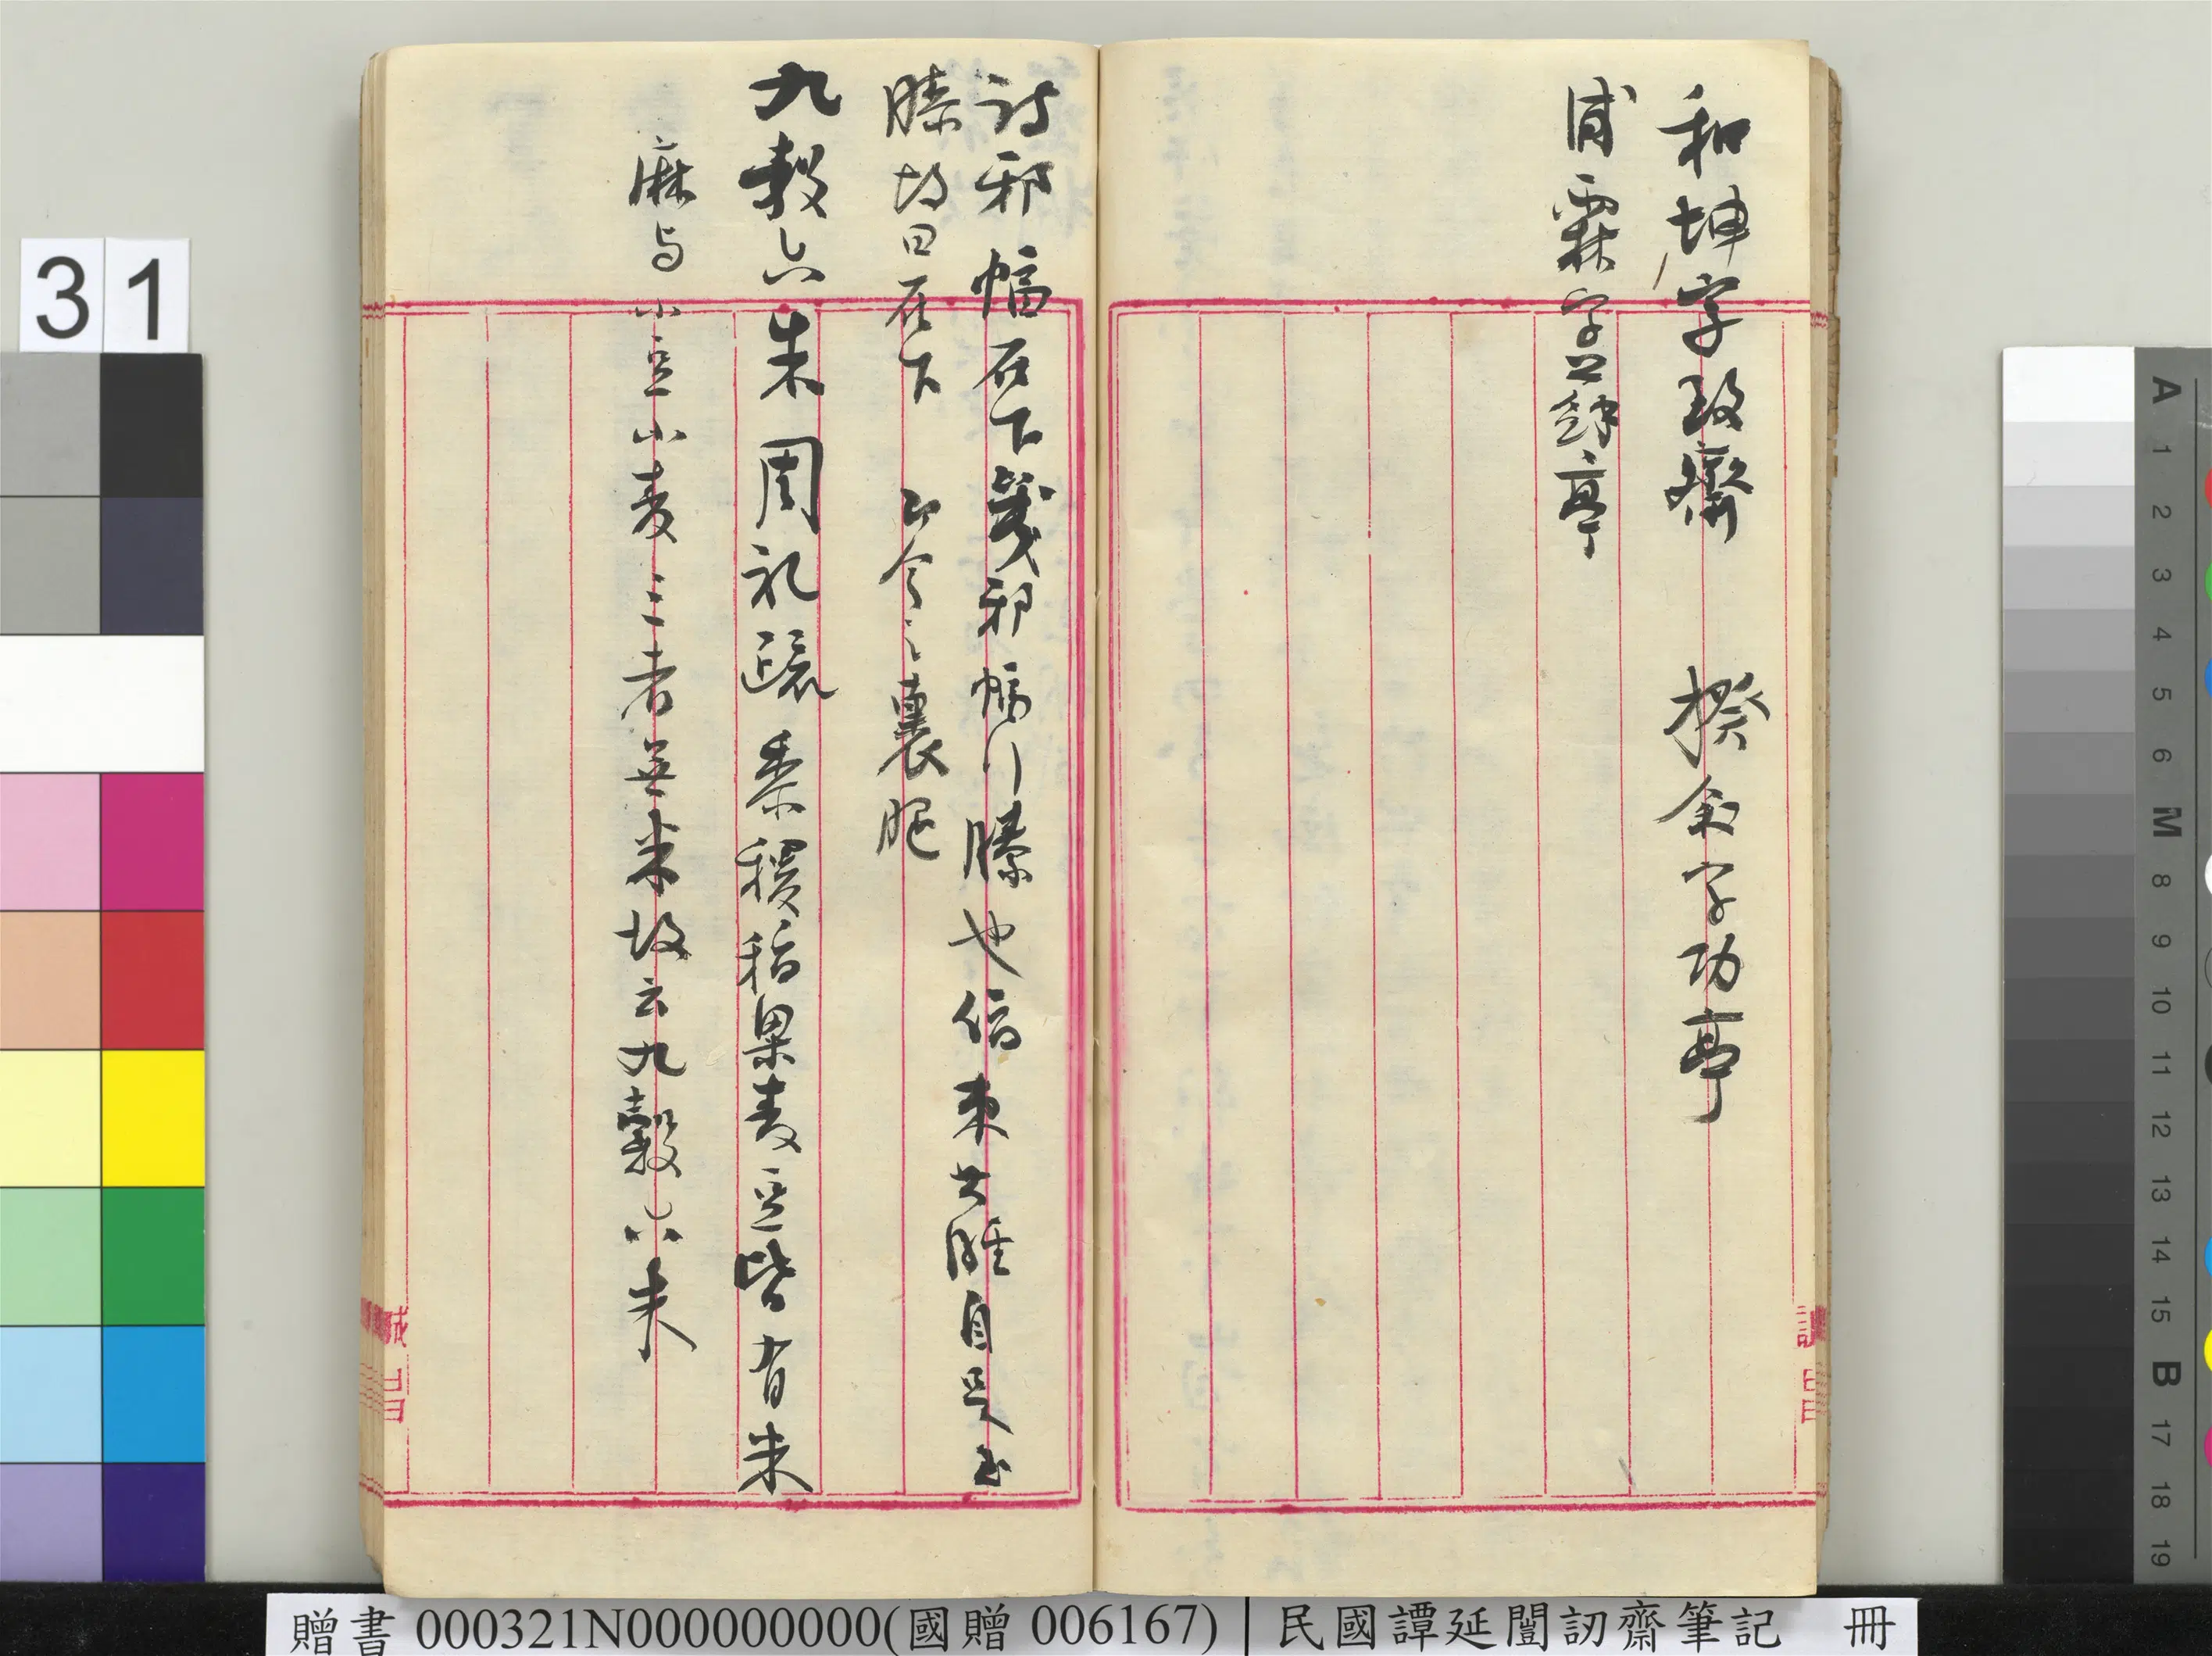 和坤字致齋　揆叙字功亭
浦霖字亭
詩邪幅在下箋邪幅行縢也偪束其脛自足至
膝故曰在下　即今之裹腿
九穀六米周礼疏黍稷稻粱麦豆皆有米
麻与小豆小麦三者無米故云九穀六米
31
訒
誠
贈書 000321N000000000(國贈 006167)│民國譚延闓訒齋筆記　冊
A 1 2 3 4 5 6 M 8 9 10 11 12 13 14 15 B 17 18 19